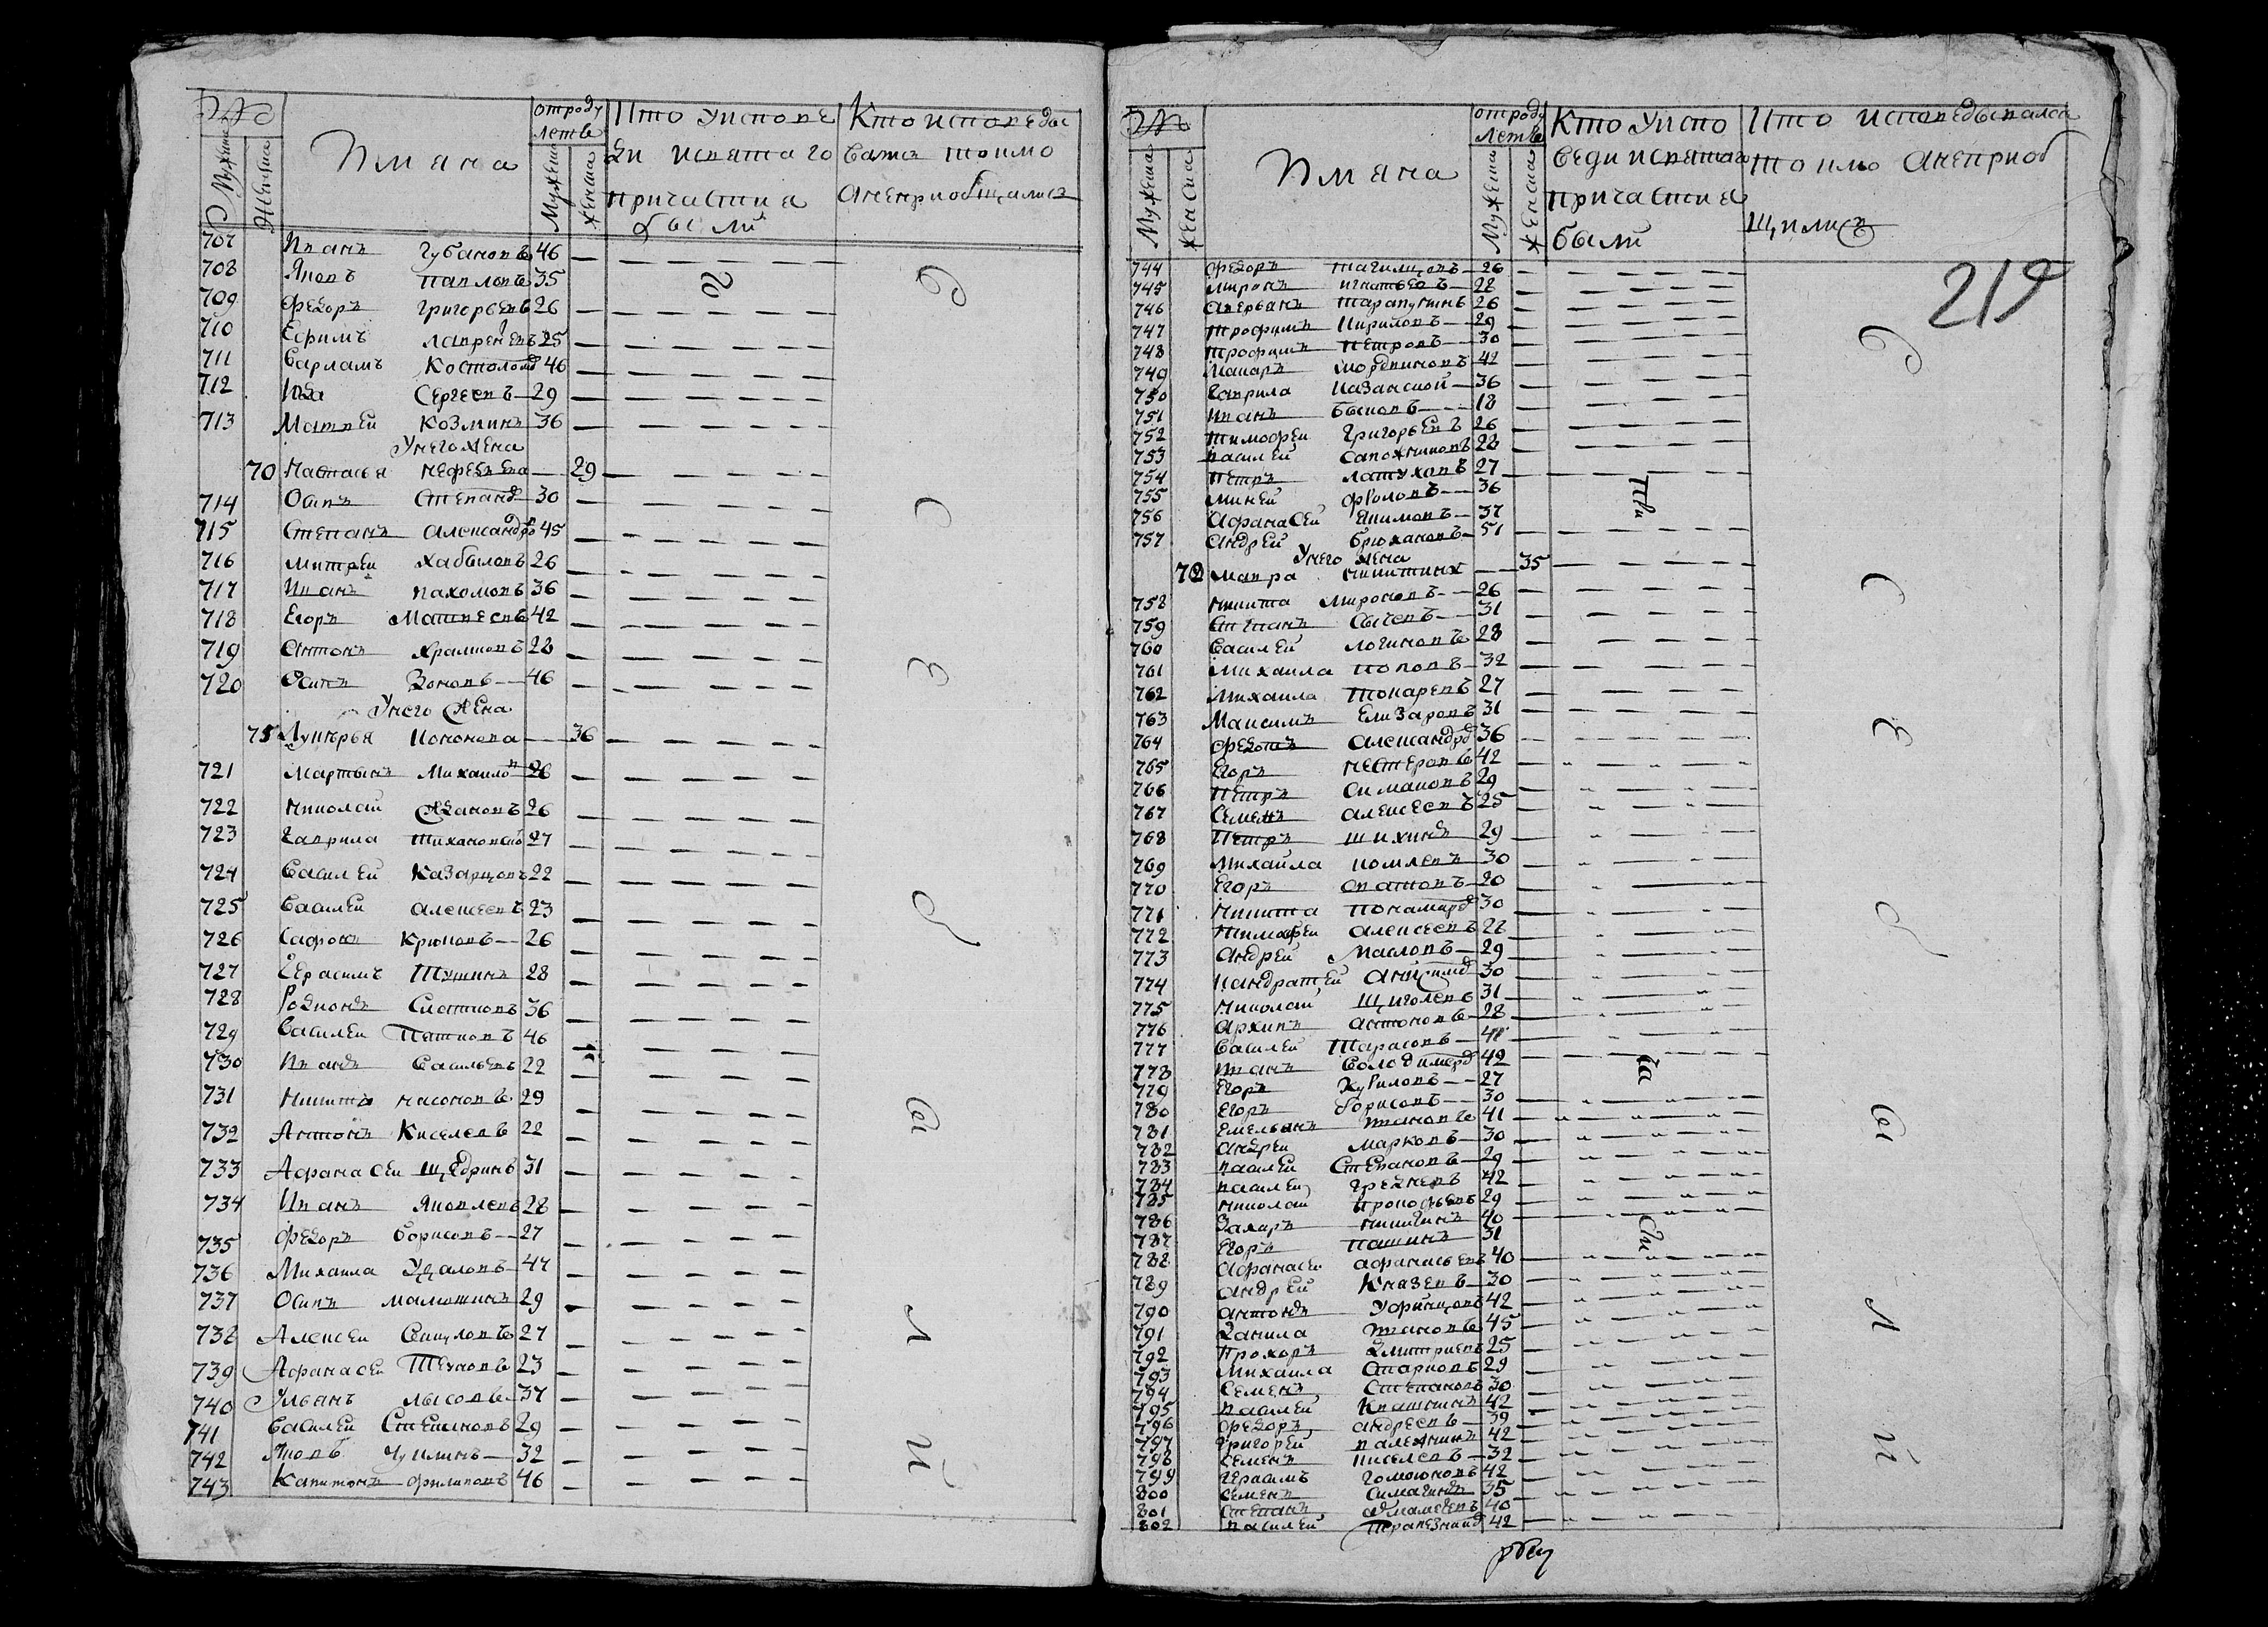 №
Мужеска
Женска
Имяна
отроду
летъ
Мужеска
женска
Кто уиспове
ди исвятаго
причастия
были
Кто исповеды
вался токмо
Анеприобщались
707 Иванъ Губановъ 46
708 Яковъ павловъ 35
709 Федоръ григорьевъ 26
710 Ефимъ лаврентьевъ 25
711 Варламъ Костолом 46
712 Иова Сергеевъ 29
713 Матвей Козминъ 36
Унего жена
70 Настасья нефедьева 29
714 Осипъ Степанов 30
715 Степанъ александров 45
716 митрей хабаловъ 26
717 Иванъ пахомовъ 36
718 Егоръ Матвеевъ 42
719 антонъ храмковъ 28
720 Осипъ Зоновъ 46
Унего Жена
71 Лукерья Кононова 36
721 мартынъ Михайлов 26
722 николай Ждановъ 26
723 гаврила Тихановской 27
724 Василей Казанцовъ 22
725 Василей алексеевъ 23
726 Сафонъ Крюковъ 26
727 Герасимъ Тушинъ 28
728 Родионъ Слотковъ 36
729 Василей Патковъ 46
730 Иванъ Васильевъ 22
731 никита насоновъ 29
732 Антонъ Киселевъ 22
733 Афанасей щедринъ 31
734 Иванъ Яковлевъ 28
735 Федоръ борисовъ 27
736 Михаила Удаловъ 47
737 Осипъ малышинъ 29
738 Алексей Викуловъ 27
739 Афанасей Тезиковъ 23
740 Ульянъ лысовъ 37
741 Василей Степановъ 29
742 Яковъ Чулинъ 32
743 Капитонъ филиповъ 46
го
В
С
Е
д
ы
Л
Й
№
Мужеска
женска
Имяна
отроду
летъ
Мужеска
женска
Кто уиспо
веди исвятаго
причастия
были
Кто исповедывался
токмо Анеприоб
щились
219
744 федоръ тагильцовъ 26
745 миронъ игнатьевъ 28
746 аверьянъ тарапухинъ 26
747 трофимъ Кириловъ 29
748 трофимъ петровъ 30
749 Макаръ мордвиновъ 42
750 гаврила Казанской 36
751 Иванъ быковъ 18
752 тимофей григорьевъ 26
753 василей сапожниковъ 28
754 петръ латуховъ 27
755 миней фроловъ 36
756 афанасей якимовъ 37
757 андрей брюхановъ 51
Унего жена
72 мавра никитина 35
758 никита мироновъ 26
759 степанъ Сычевъ 31
760 Василей логиновъ 28
761 михаила поповъ 32
762 михаила токаревъ 27
763 Максимъ Елизаровъ 31
764 федотъ александров 36
765 Егоръ нестеровъ 42
766 петръ симаковъ 29
767 Семенъ алексеевъ 25
768 Петръ шихинъ 29
769 михаила комлевъ 30
770 Егоръ сватовъ 20
771 никита понамарев 30
772 тимофей алексеевъ 22
773 андрей Масловъ 29
774 Кандратей аникинъ 30
775 николай щиголевъ 31
776 архипъ антоновъ 28
777 Василей Тарасовъ 48
778 Иванъ Володимеров 42
779 Егоръ Куриловъ 27
780 Егоръ борисовъ 30
781 Емельянъ Ивановъ 41
782 андрей марковъ 30
783 василей Степановъ 29
784 василей грезневъ 42
785 николай Прокофьевъ 29
786 Захаръ никитинъ 40
787 Егоръ пашинъ 31
788 афанасей афанасьевъ 40
789 андрей Князевъ 30
790 антонъ Уфинцовъ 42
791 данила Ивановъ 45
792 Прохоръ дмитриевъ 25
793 михаила Старковъ 29
794 Семенъ Степановъ 30
795 василей Квашнинъ 42
796 федоръ андреевъ 39
797 григорей валежнинъ 42
798 Семенъ Киселевъ 32
799 герасимъ голоюновъ 42
800 Семенъ симагинъ 35
801 Степанъ 40
802 василей Трапезников 42
при
ча
сти
В
С
Е
д
ы
Л
Й